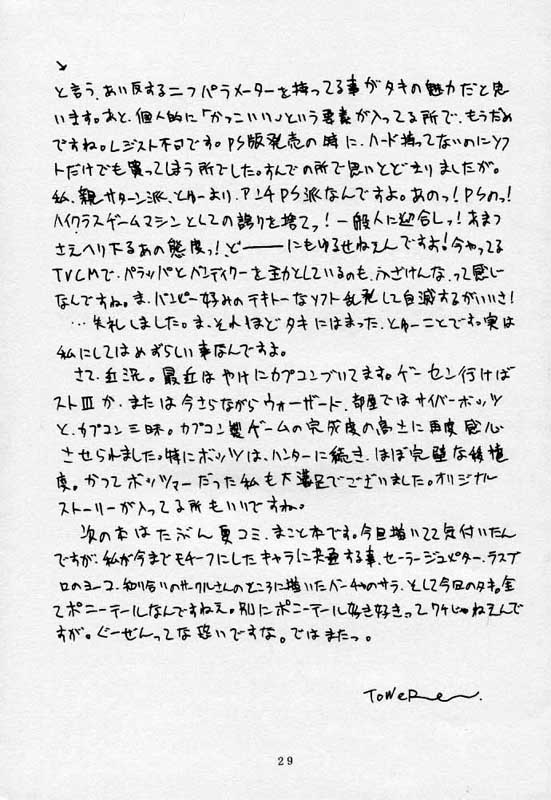 と言う、あい反する二つパラメーターを持ってる事がタキの魅力だと思
います。あと、個人的に「かっこいい」という要素が入ってる所で、もうだめ
ですね。レジスト不可です。PS版発売の時に、ハード持ってないのにソフ
トだけでも買ってしまう所でした。すんでの所で思いとどまりましたが。
私、親サターン派、とゆーより、アンチPS派なんですよ。あのっ!PSのっ!
ハイクラスゲームマシンとしての誇りを捨てっ!一般人に迎合しっ!あまつ
さえへり下るあの態度っ!、どーーーにもゆるせねえんですよ!今やってる
TVCMで、パラッパとバンディクーを主力としているのも、ふざけんな、って感じ
なんですね。ま、パンピー好みのテキトーなソフト乱発して自滅するがいいさ!
…失礼しました。ま、それほどタキにはまった、とゆーことです。実は
私にしてはめずらしい事なんですよ。
さて、近況。最近はやけにカプコンづいてます。ゲーセン行けば
ストⅢか、または今さらながらウォーザード、部屋ではサイバーボッツ
と、カプコン三昧。カプコン製ゲームの完成度の高さに再度感心
させられました。特にボッツは、ハンターに続き、ほぼ完璧な移植
度。かつてボッツマーだった私も大満足でございました。オリジナル
ストーリーが入ってる所もいいですね。
次の本はたぶん夏コミ、まこと本です。今回描いてて気付いたん
ですが、私が今までモチーフにしたキャラに共通する事、セーラージュピター、ラスブ
ロのヨーコ、知り合いのサークルさんのところに描いたバーチャのサラ、そして今回のタキ。全
てポニーテールなんですねえ。別にポニーテール好き好きってワケじゃねえんで
すが。ぐーぜんってな恐いですな。ではまたっ。
ToWeR
29